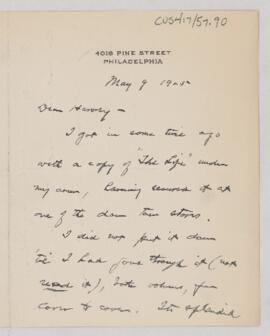 CUS417/57.90
4016 PINE STREET
PHILADELPHIA
May 9 1925
Dear Harvey –
I got in some time ago
with a copy of "The Life" under
my arm, having secured it at
one of the down town stores.
I did not put it down
'til I had gone through it (not
read it), both volumes, from
cover to cover. Its splendid